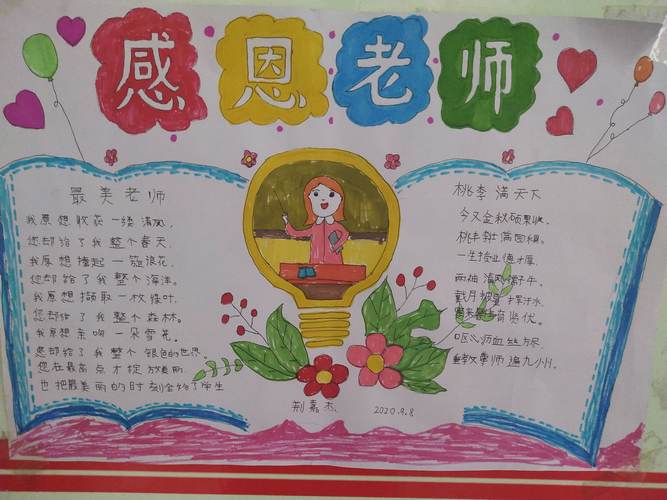 感恩老师
最美老师
我原想收获一缕清风,
您却给了我整个春天.
我原想捧起一簇浪花.
您却给了我整个海洋.
我原想撷取一枚绿叶.
您却给了我整个森林.
我原想亲吻一朵雪花.
您却给了我整个银色的世界.
您在最高点才绽放美丽
也把最美丽的时刻全给了学生
桃李满天下
今又金秋硕果收.
桃李满园稠.
一生授业
两袖清风
戴月披星挥汗水.
有贤优.
呕心沥血丝方尽.
尊师遍九小州.
荆嘉杰
2020.9.8